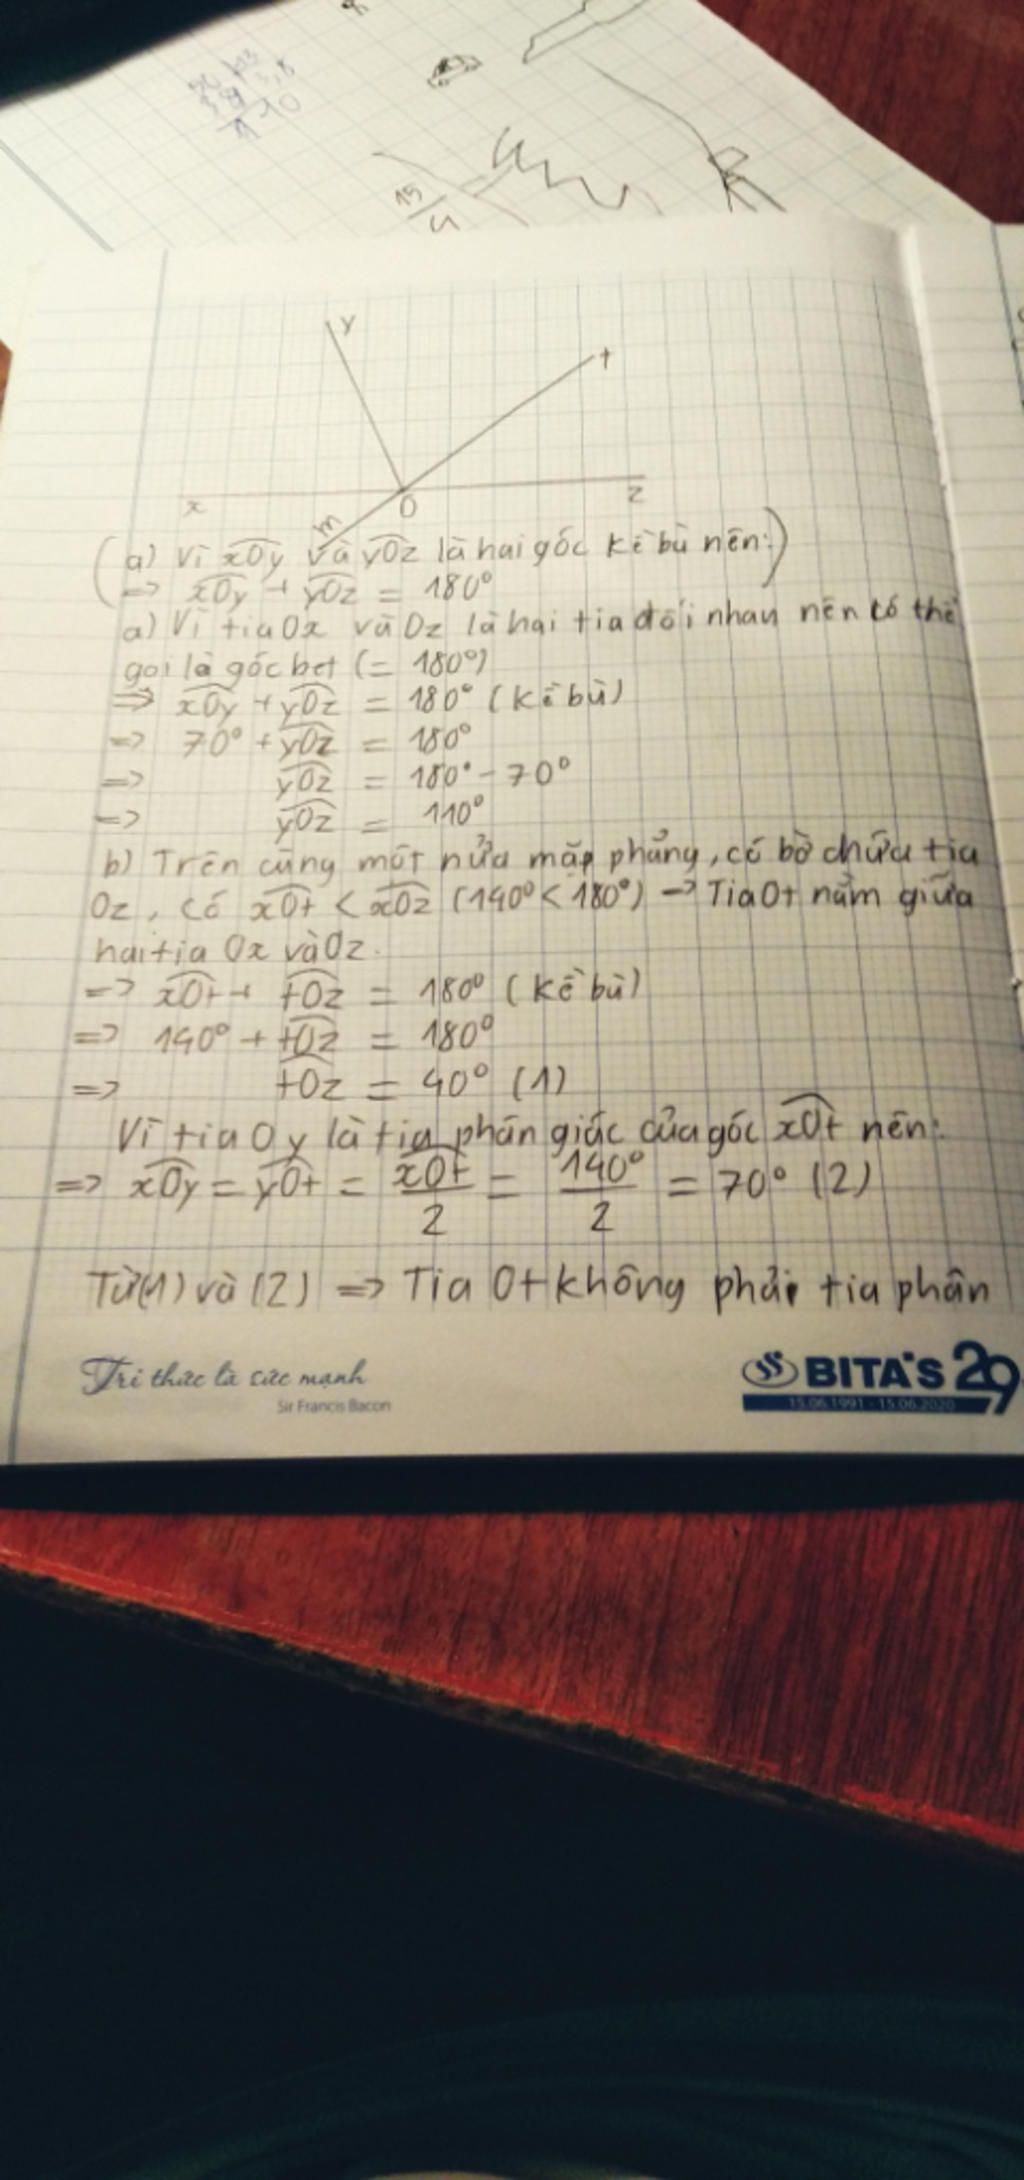 15
y
t
x
O
z
m
(a) Vì xOy và yOz là hai góc kề bù nên:)
=> xOy + yOz = 180°
a) Vì tia Ox và Oz là hai tia đối nhau nên có thể
gọi là góc bẹt (= 180°)
=> xOy + yOz = 180° (kề bù)
=> 70° + yOz = 180°
=> yOz = 180° - 70°
=> yOz = 110°
b) Trên cùng một nửa mặp phẳng, có bờ chứa tia
Oz, có xOt < xOz (140° < 180°) → Tia Ot nằm giữa
hai tia Ox và Oz.
=> xOt + tOz = 180° (kề bù)
=> 140° + tOz = 180°
=> tOz = 40° (1)
Vì tia Oy là tia phân giác của góc xOt nên:
=> xOy = yOt = xOt/2 = 140°/2 = 70° (2)
Từ (1) và (2) => Tia Ot không phải tia phân
Tri thức là sức mạnh
Sir Francis Bacon
BITA'S 29
15.06.1991 - 15.06.2020